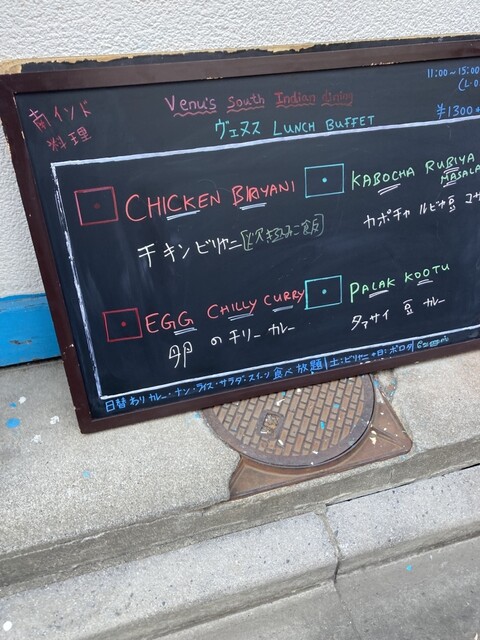 南インド
料理
Venu's South Indian dining
11:00-15:00
ヴェヌス LUNCH BUFFET
¥1300
CHICKEN BIRIYANI
チキンビリヤニ[炊き込みご飯]
KABOCHA RUBIYA
MASALA
カボチャ ルビヤ豆
EGG CHILLY CURRY
卵 のチリー カレー
PALAK KOOTU
豆 カレー
日替わりカレー・ナン・ライス・サラダ・スイーツ 食べ放題
土:ビリヤニ